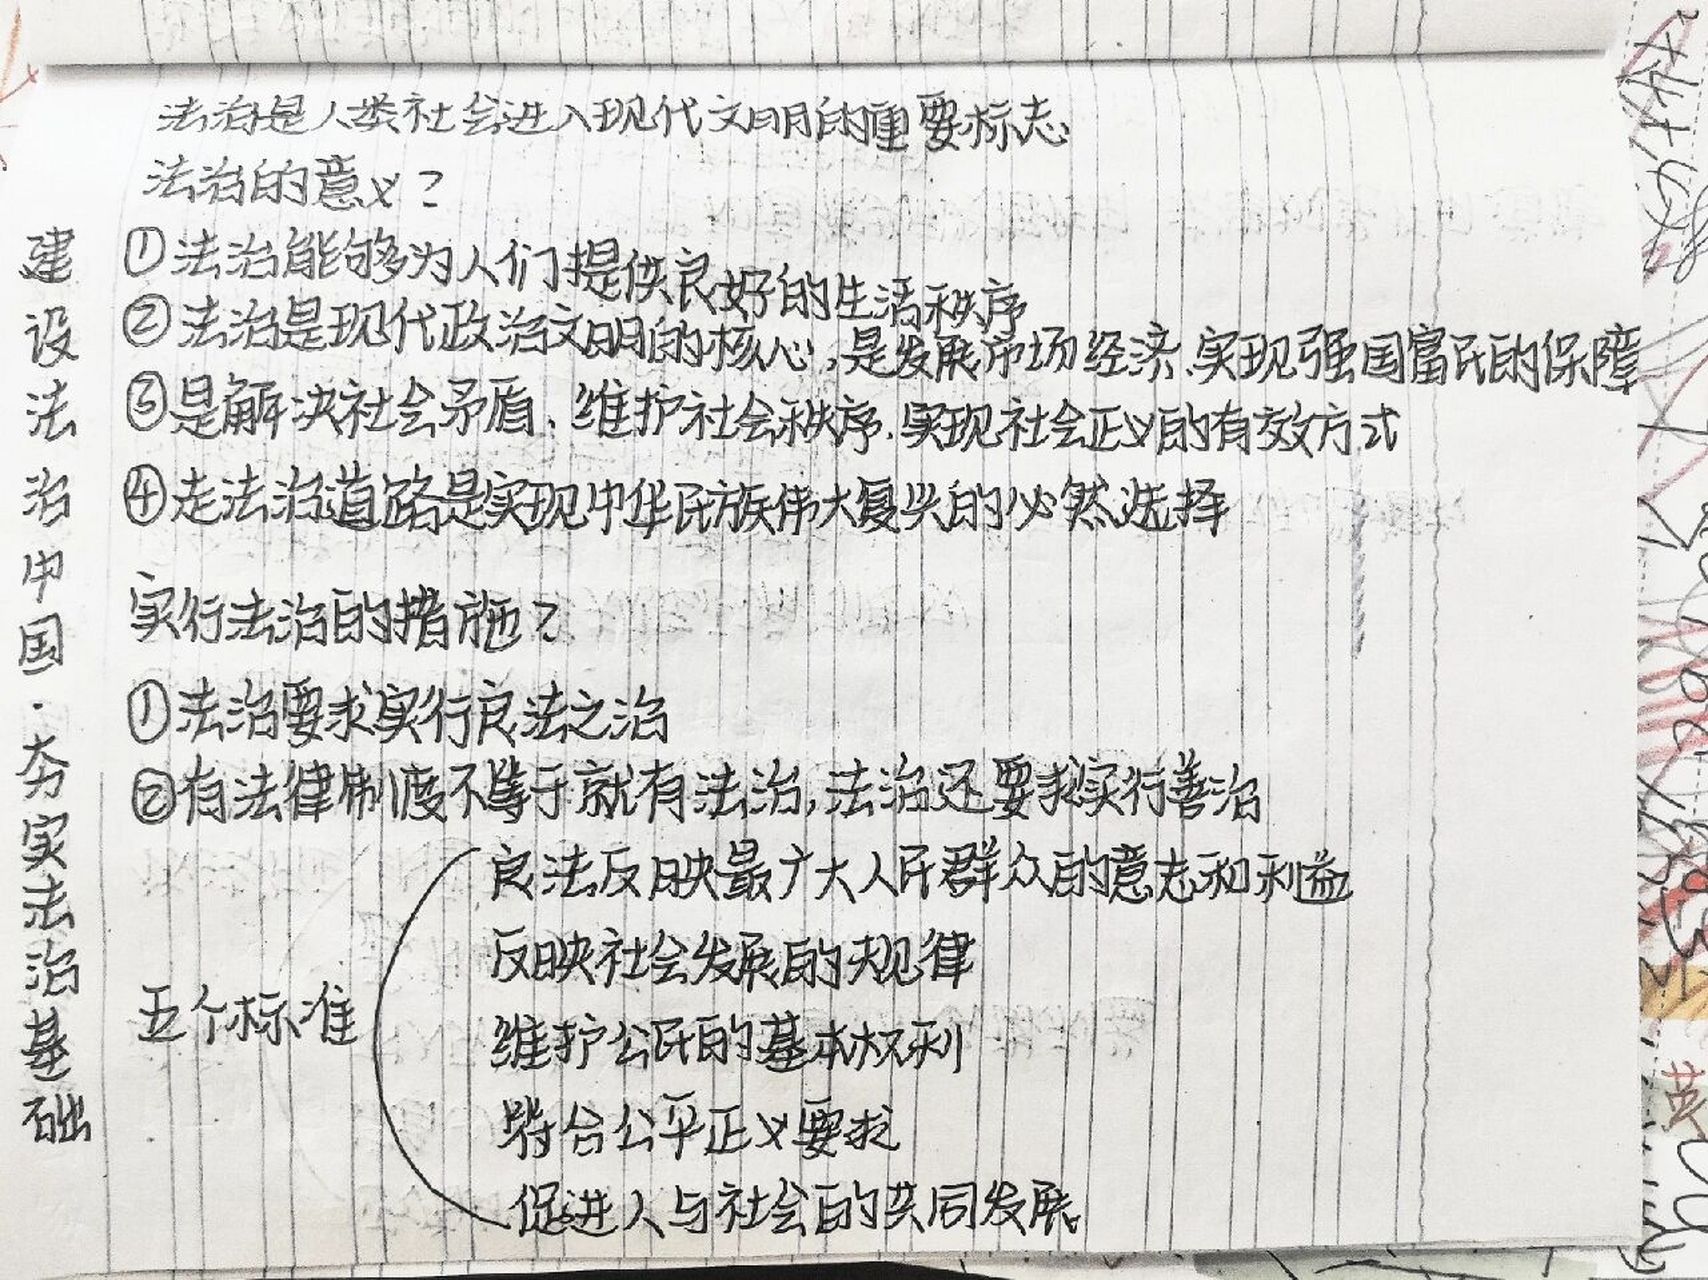 建设法治中国·夯实法治基础
法治是人类社会进入现代文明的重要标志
法治的意义?
①法治能够为人们提供良好的生活秩序
②法治是现代政治文明的核心,是发展市场经济、实现强国富民的保障
③是解决社会矛盾、维护社会秩序、实现社会正义的有效方式
④走法治道路是实现中华民族伟大复兴的必然选择
实行法治的措施?
①法治要求实行良法之治
②有法律制度不等于就有法治,法治还要求实行善治
五个标准
良法反映最广大人民群众的意志和利益
反映社会发展的规律
维护公民的基本权利
符合公平正义要求
促进人与社会的共同发展
英